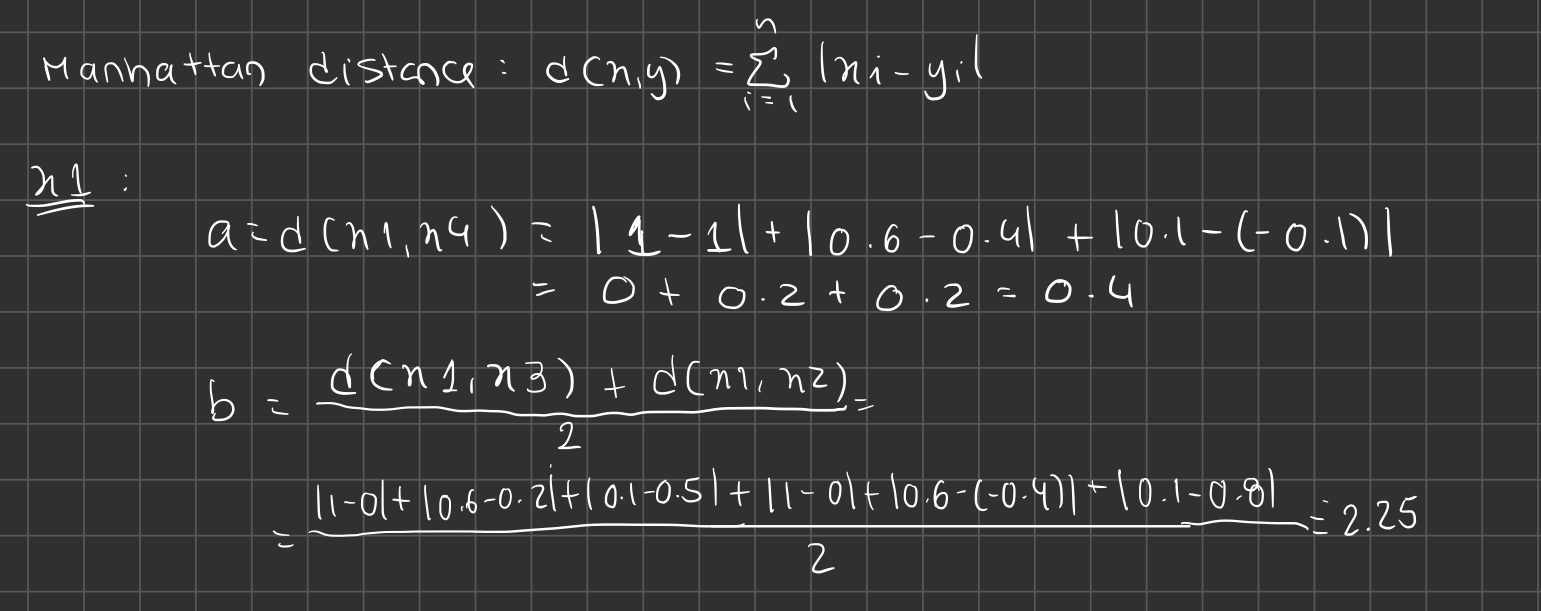 Manhattan distance: d(x,y) = Σ_{i=1}^{n} |xi - yi|
x1:
a = d(x1, x4) = |1-1| + |0.6-0.4| + |0.1-(-0.1)|
= 0 + 0.2 + 0.2 = 0.4
b = (d(x1, x3) + d(x1, x2)) / 2 =
= (|1-0| + |0.6-0.2| + |0.1-0.5| + |1-0| + |0.6-(-0.4)| + |0.1-0.8|) / 2 = 2.25